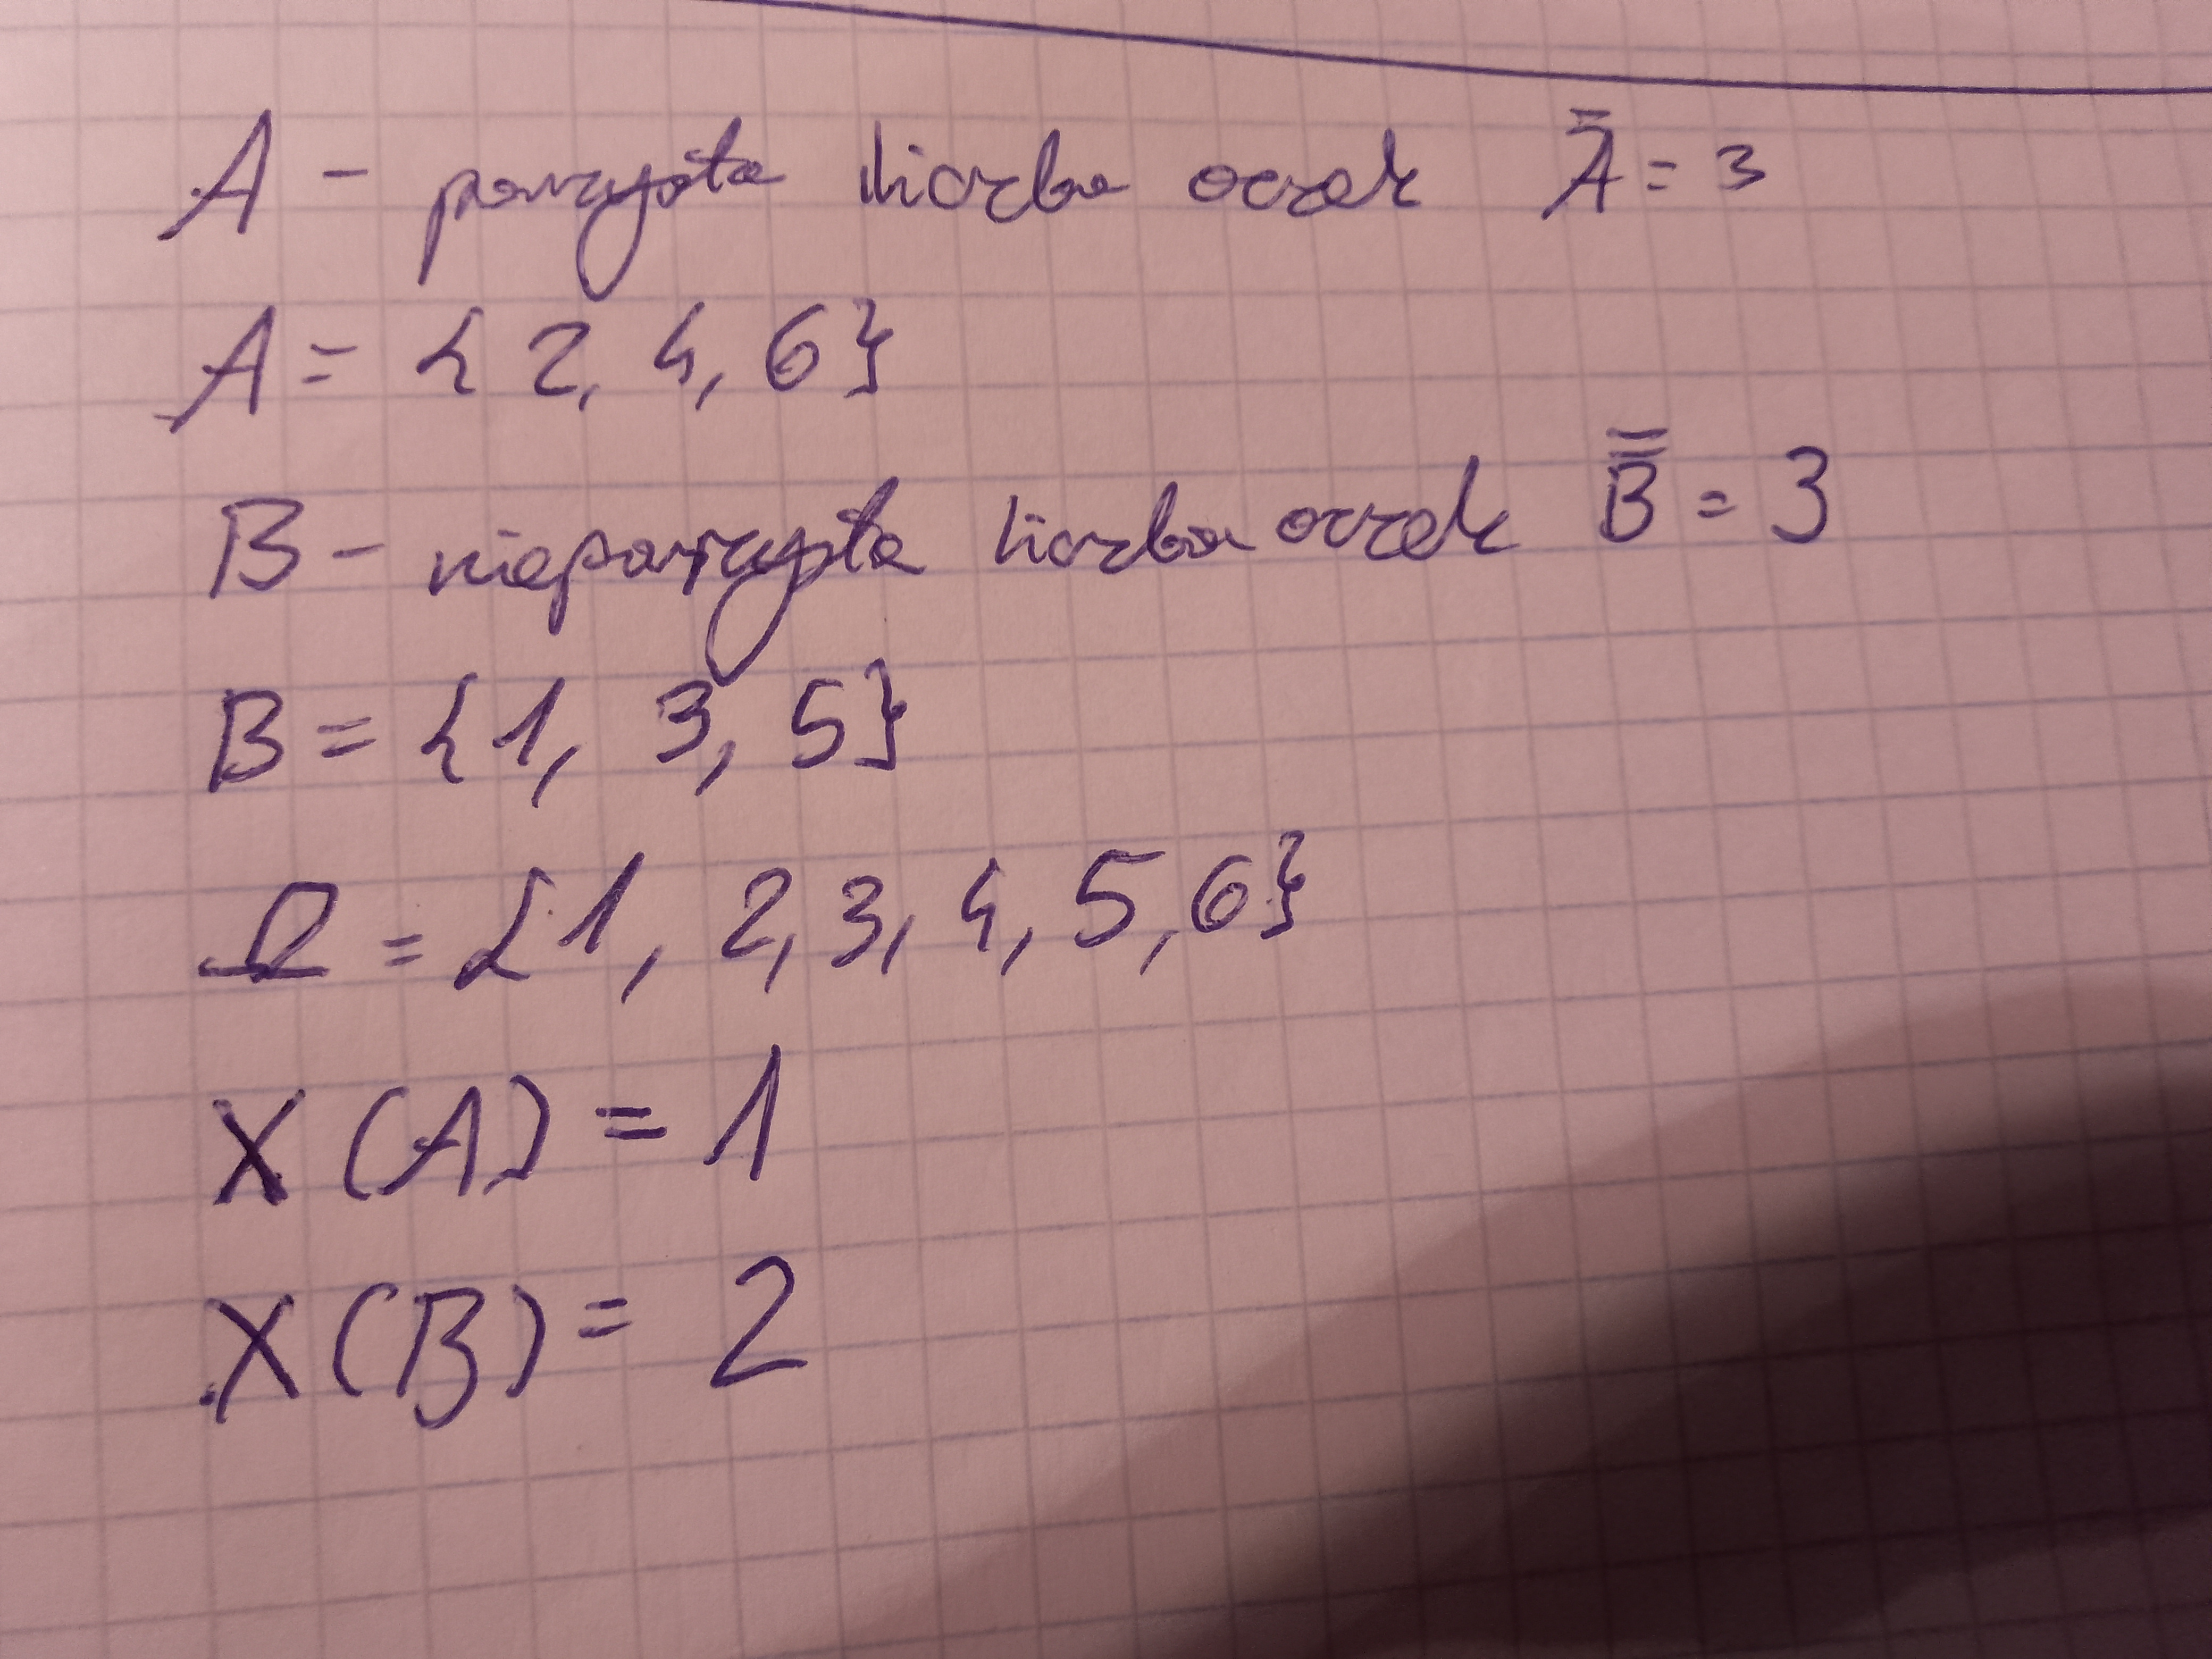 A - parzysta liczba oczek A̿ = 3
A = { 2, 4, 6}
B - nieparzysta liczba oczek B̿ = 3
B = {1, 3, 5}
Ω = {1, 2, 3, 4, 5, 6}
X (A) = 1
X (B) = 2